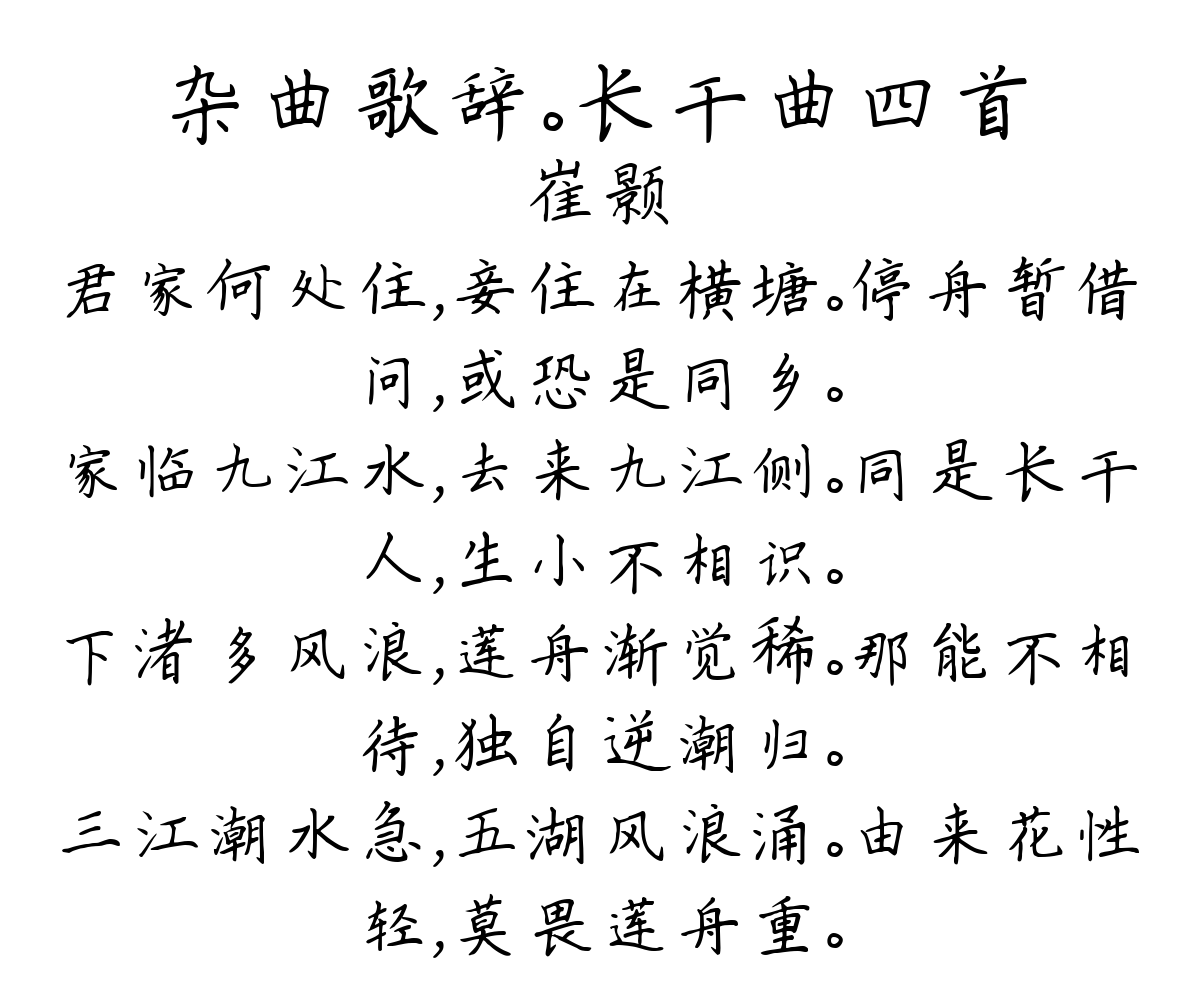 杂曲歌辞。长干曲四首
崔颢
君家何处住,妾住在横塘。停舟暂借
问,或恐是同乡。
家临九江水,去来九江侧。同是长干
人,生小不相识。
下渚多风浪,莲舟渐觉稀。那能不相
待,独自逆潮归。
三江潮水急,五湖风浪涌。由来花性
轻,莫畏莲舟重。